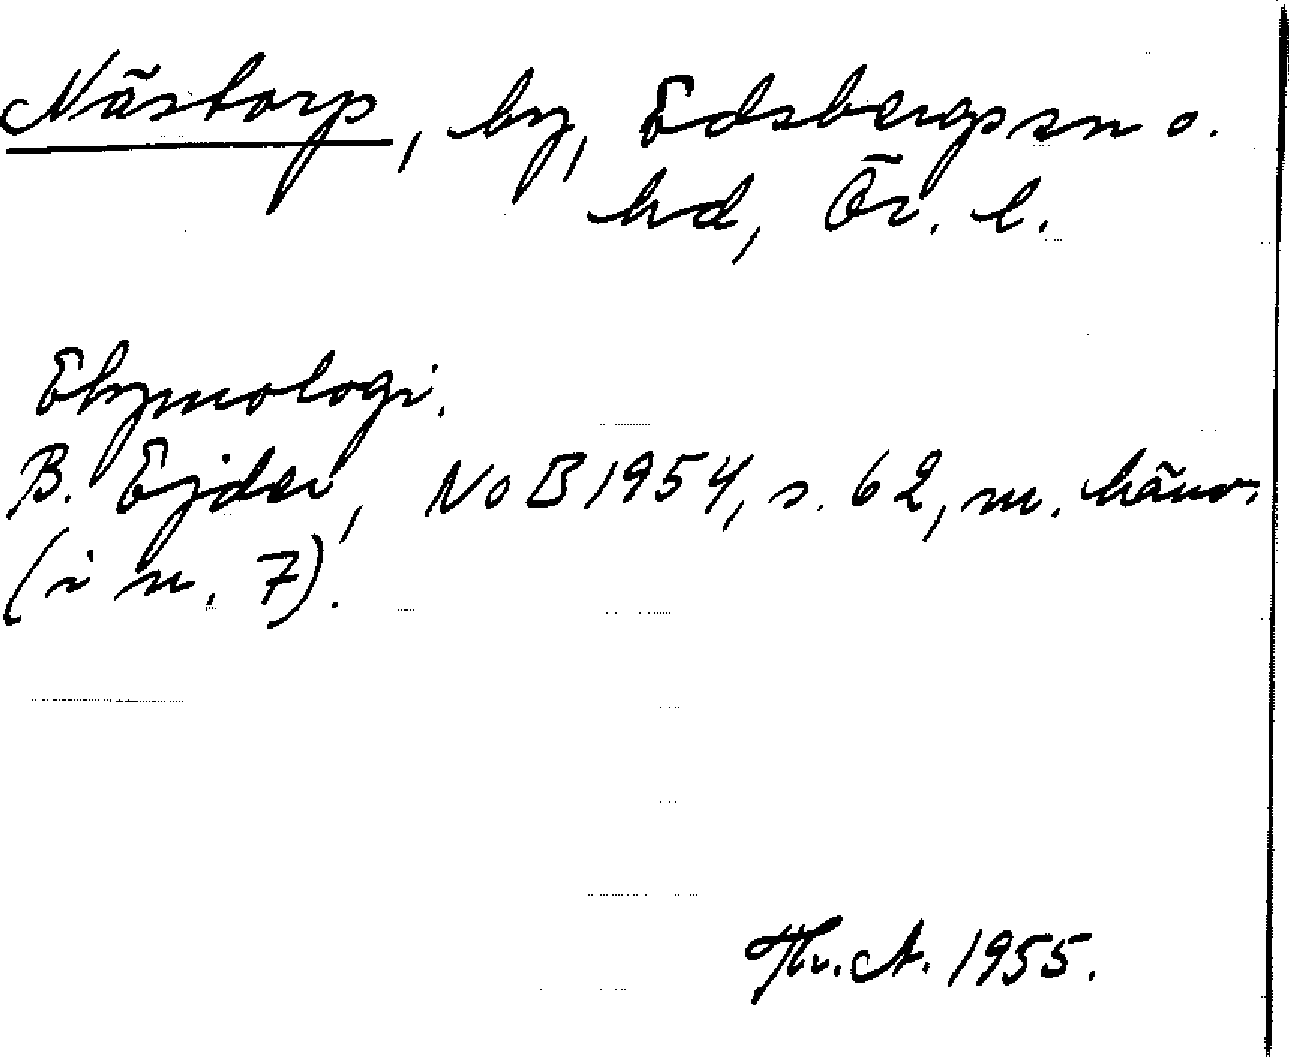 Nästorp, by, Edsbergs sn o.
hd, Ör. l.
Etymologi.
B. Ejder, NoB 1954, s. 62, m. hänv.
(i n. 7).
Hr. A. 1955.